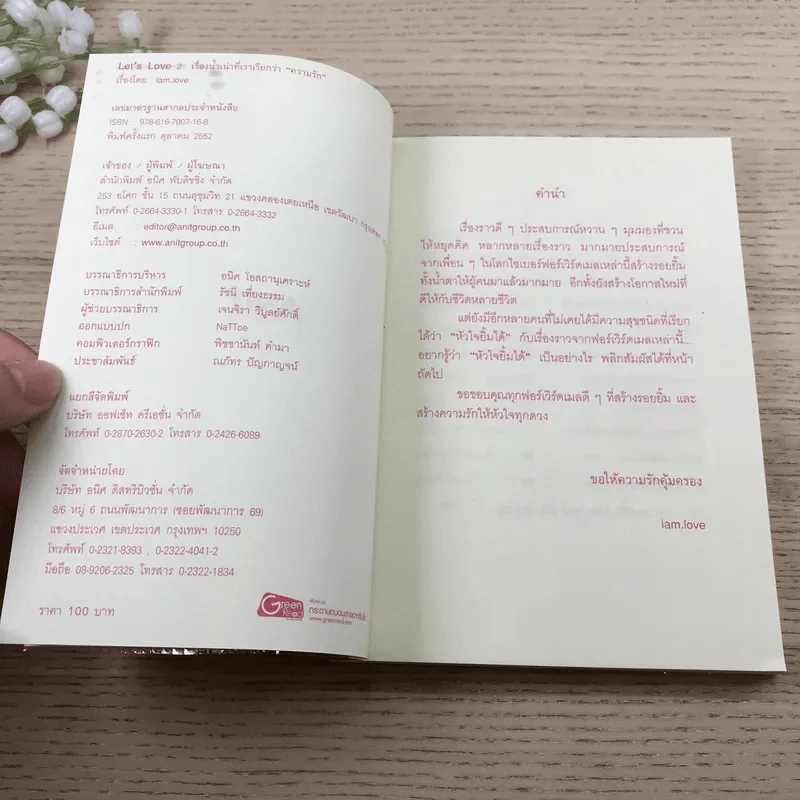 Let's Love 2 เรื่องน้ำเน่าที่เราเรียกว่า "ความรัก"
เรื่องโดย iam.love
เลขมาตรฐานสากลประจำหนังสือ
ISBN : 978-616-7007-16-8
พิมพ์ครั้งแรก ตุลาคม 2552
เจ้าของ / ผู้พิมพ์ / ผู้โฆษณา
สำนักพิมพ์ อนิศ พับลิชชิ่ง จำกัด
253 อโศก ชั้น 15 ถนนสุขุมวิท 21 แขวงคลองเตยเหนือ เขตวัฒนา
โทรศัพท์ 0-2664-3330-1 โทรสาร 0-2664-3332
อีเมล : editor@anitgroup.co.th
เว็บไซต์ : www.anitgroup.co.th
บรรณาธิการบริหาร อนิศ โอสถานุเคราะห์
บรรณาธิการสำนักพิมพ์ รัชนี เที่ยงธรรม
ผู้ช่วยบรรณาธิการ เจนจิรา วิบูลย์ศักดิ์
ออกแบบปก NaTToe
คอมพิวเตอร์กราฟิก พิชชานันท์ คำมา
ประชาสัมพันธ์ ณภัทร ปัญกาญจน์
แยกสีจัดพิมพ์
บริษัท ออฟเซ็ท ครีเอชั่น จำกัด
โทรศัพท์ 0-2870-2630-2 โทรสาร 0-2426-6089
จัดจำหน่ายโดย
บริษัท อนิศ ดิสทริบิวชั่น จำกัด
8/6 หมู่ 6 ถนนพัฒนาการ (ซอยพัฒนาการ 69)
แขวงประเวศ เขตประเวศ กรุงเทพฯ 10250
โทรศัพท์ 0-2321-8393 , 0-2322-4041-2
มือถือ 08-9206-2325 โทรสาร 0-2322-1834
ราคา 100 บาท
Green Read
กระดาษถนอมสายตา
www.greenread.com
คำนำ
เรื่องราวดี ๆ ประสบการณ์หวาน ๆ มุมมองที่ชวน
ให้หยุดคิด หลากหลายเรื่องราว มากมายประสบการณ์
จากเพื่อน ๆ ในโลกไซเบอร์ฟอร์เวิร์ดเมลเหล่านี้สร้างรอยยิ้ม
ทั้งน้ำตาให้ผู้คนมาแล้วมากมาย อีกทั้งยังสร้างโอกาสใหม่ที่
ดีให้กับชีวิตหลายชีวิต
แต่ยังมีอีกหลายคนที่ไม่เคยได้มีความสุขชนิดที่เรียก
ได้ว่า "หัวใจยิ้มได้" กับเรื่องราวจากฟอร์เวิร์ดเมลเหล่านี้...
อยากรู้ว่า "หัวใจยิ้มได้" เป็นอย่างไร พลิกสัมผัสได้ที่หน้า
ถัดไป
ขอขอบคุณทุกฟอร์เวิร์ดเมลดี ๆ ที่สร้างรอยยิ้ม และ
สร้างความรักให้หัวใจทุกดวง
ขอให้ความรักคุ้มครอง
iam.love